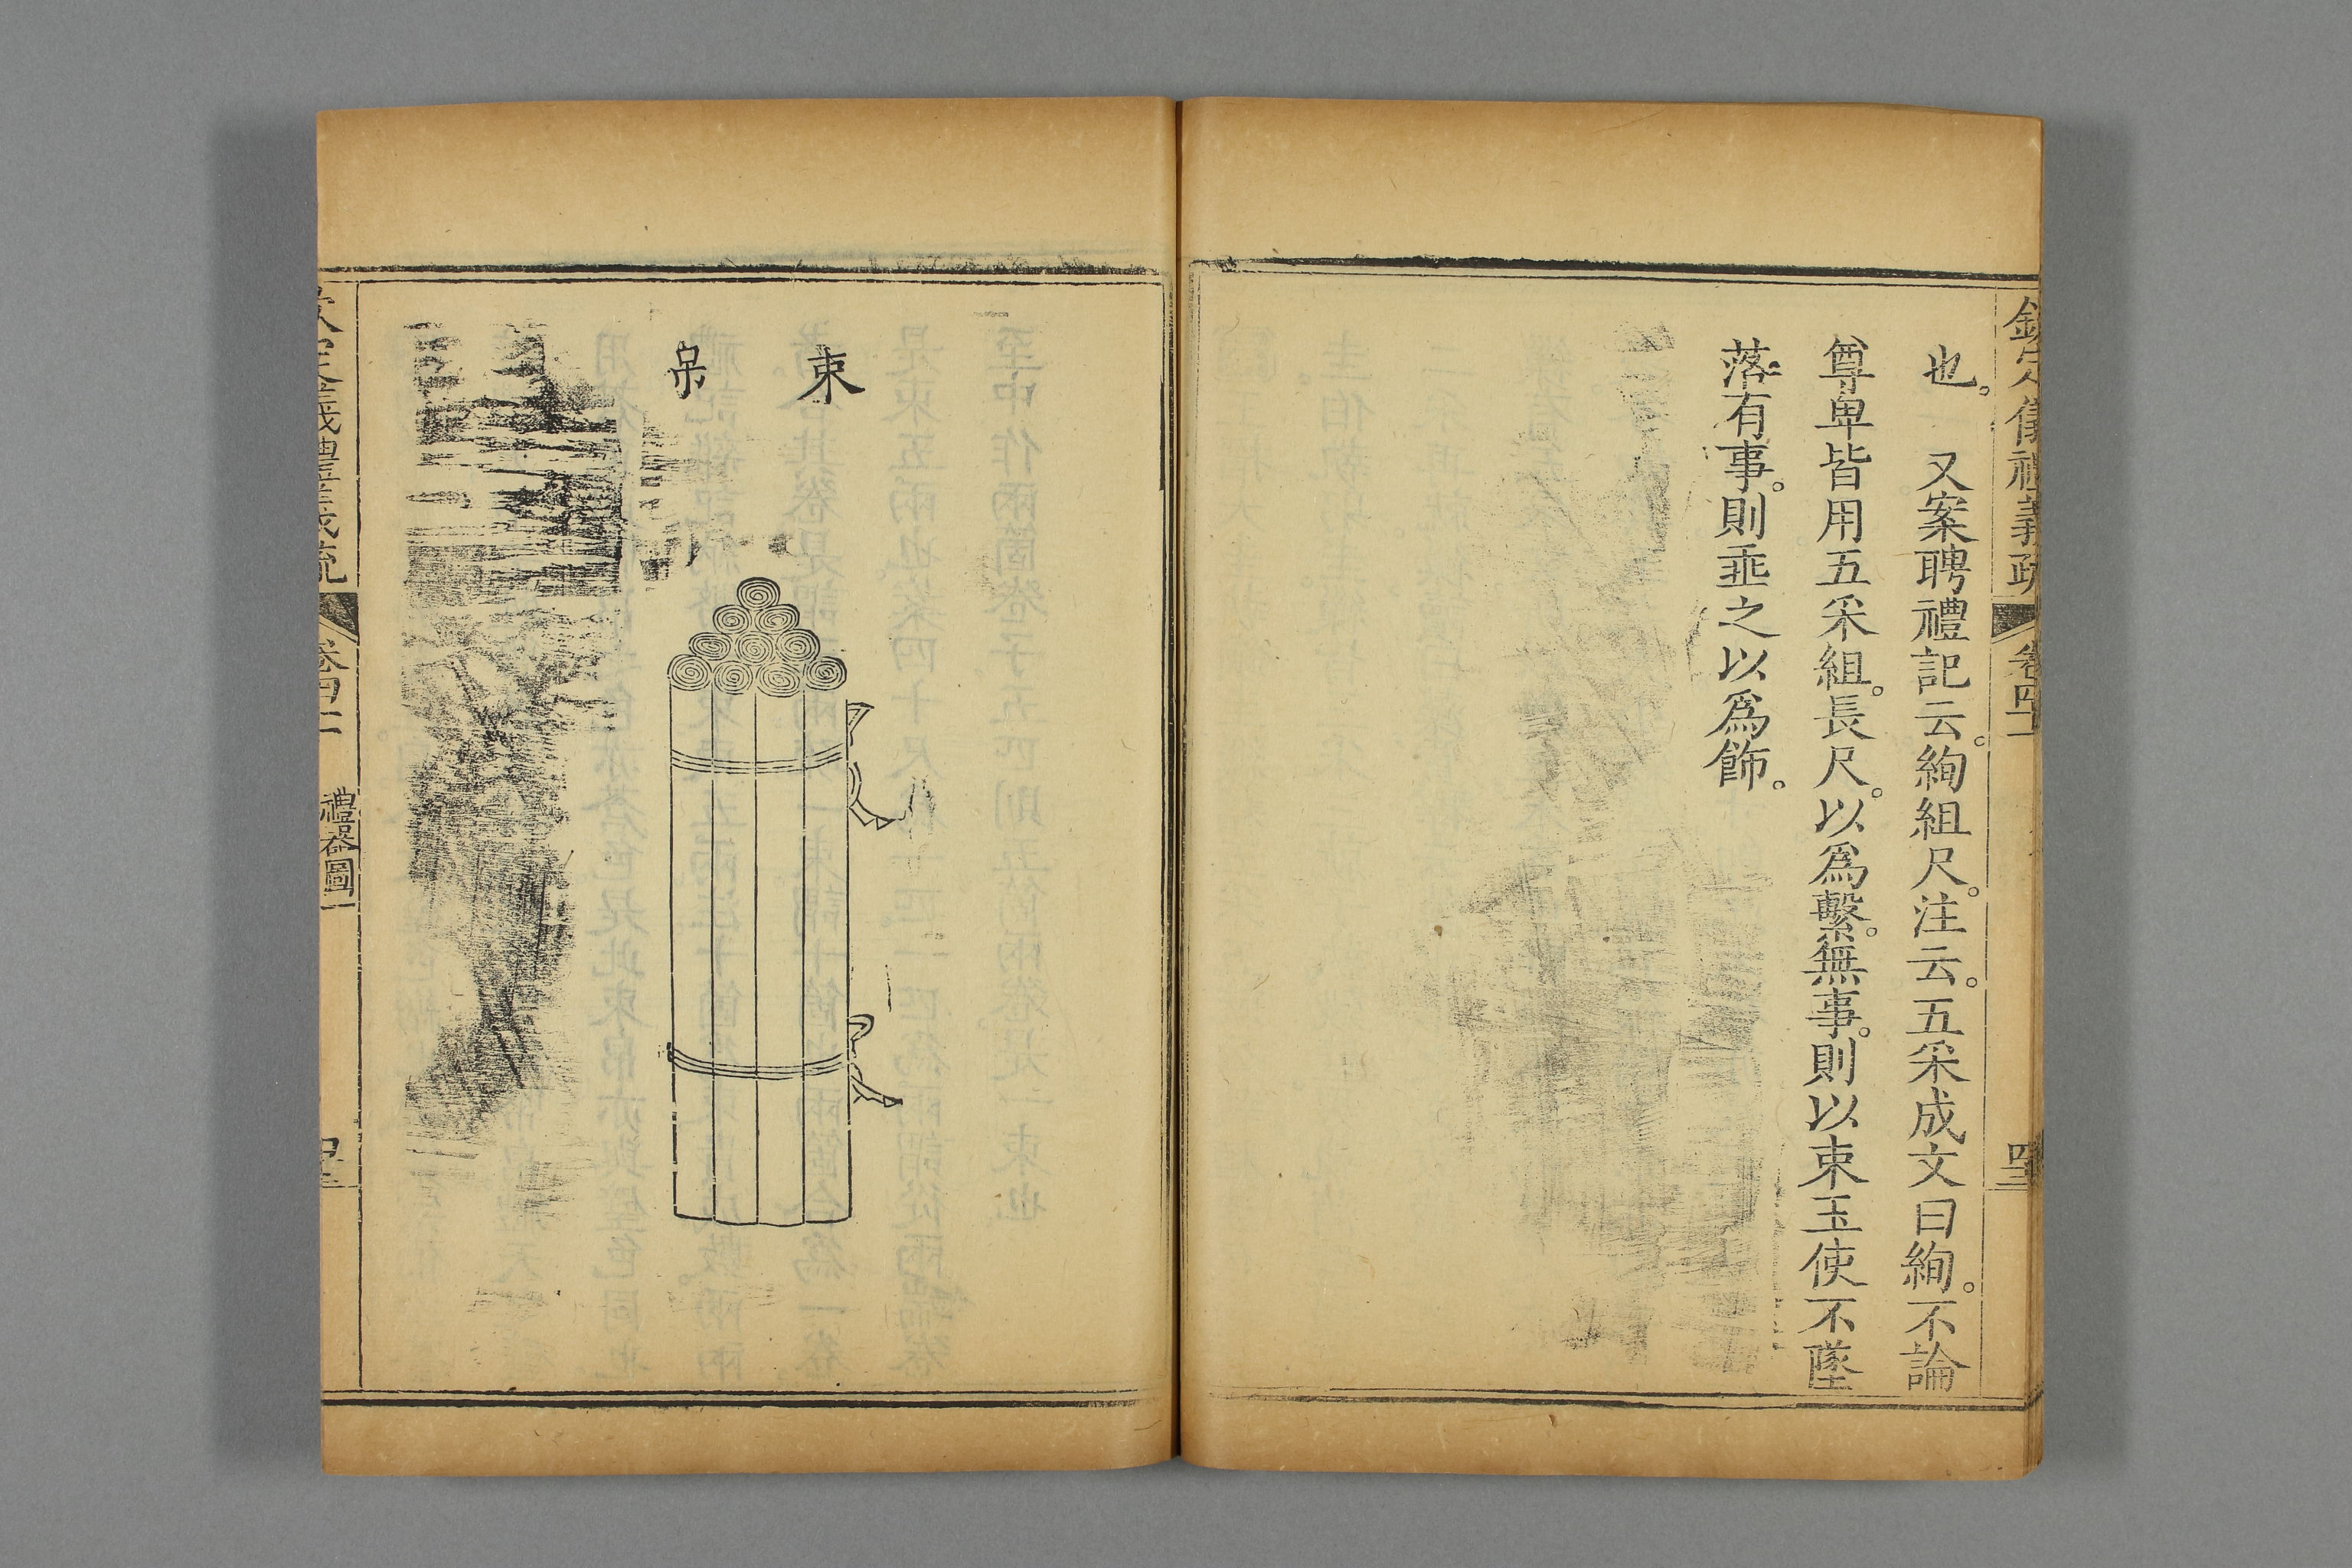 欽定儀禮義疏 卷四十二
也。 又案聘禮記云。絢組尺。注云。五采成文曰絢。不論
尊卑皆用五采組。長尺。以為繫。無事。則以束玉使不墜
落。有事。則垂之以為飾。
束帛
欽定儀禮義疏 卷四十二 禮器圖一